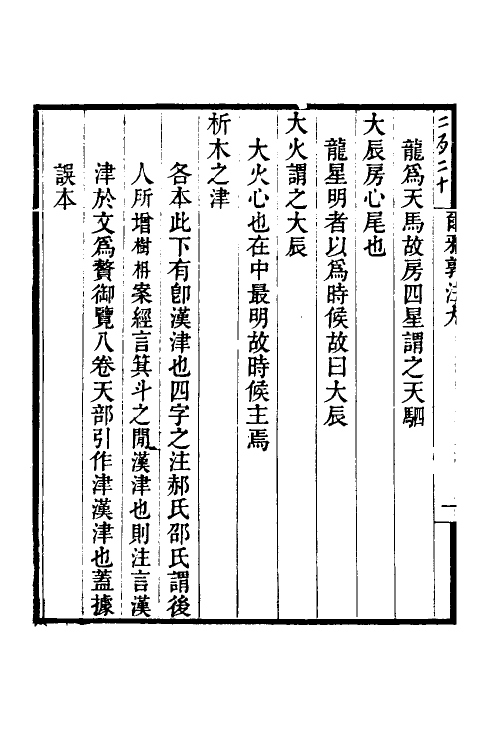 龍爲天馬故房四星謂之天駟
大辰房心尾也
龍星明者以爲時候故曰大辰
大火謂之大辰
大火心也在中最明故時候主焉
析木之津
各本此下有卽漢津也四字之注郝氏邵氏謂後
人所增樹枏案經言箕斗之閒漢津也則注言漢
津於文爲贅御覽八卷天部引作津漢津也蓋據
誤本